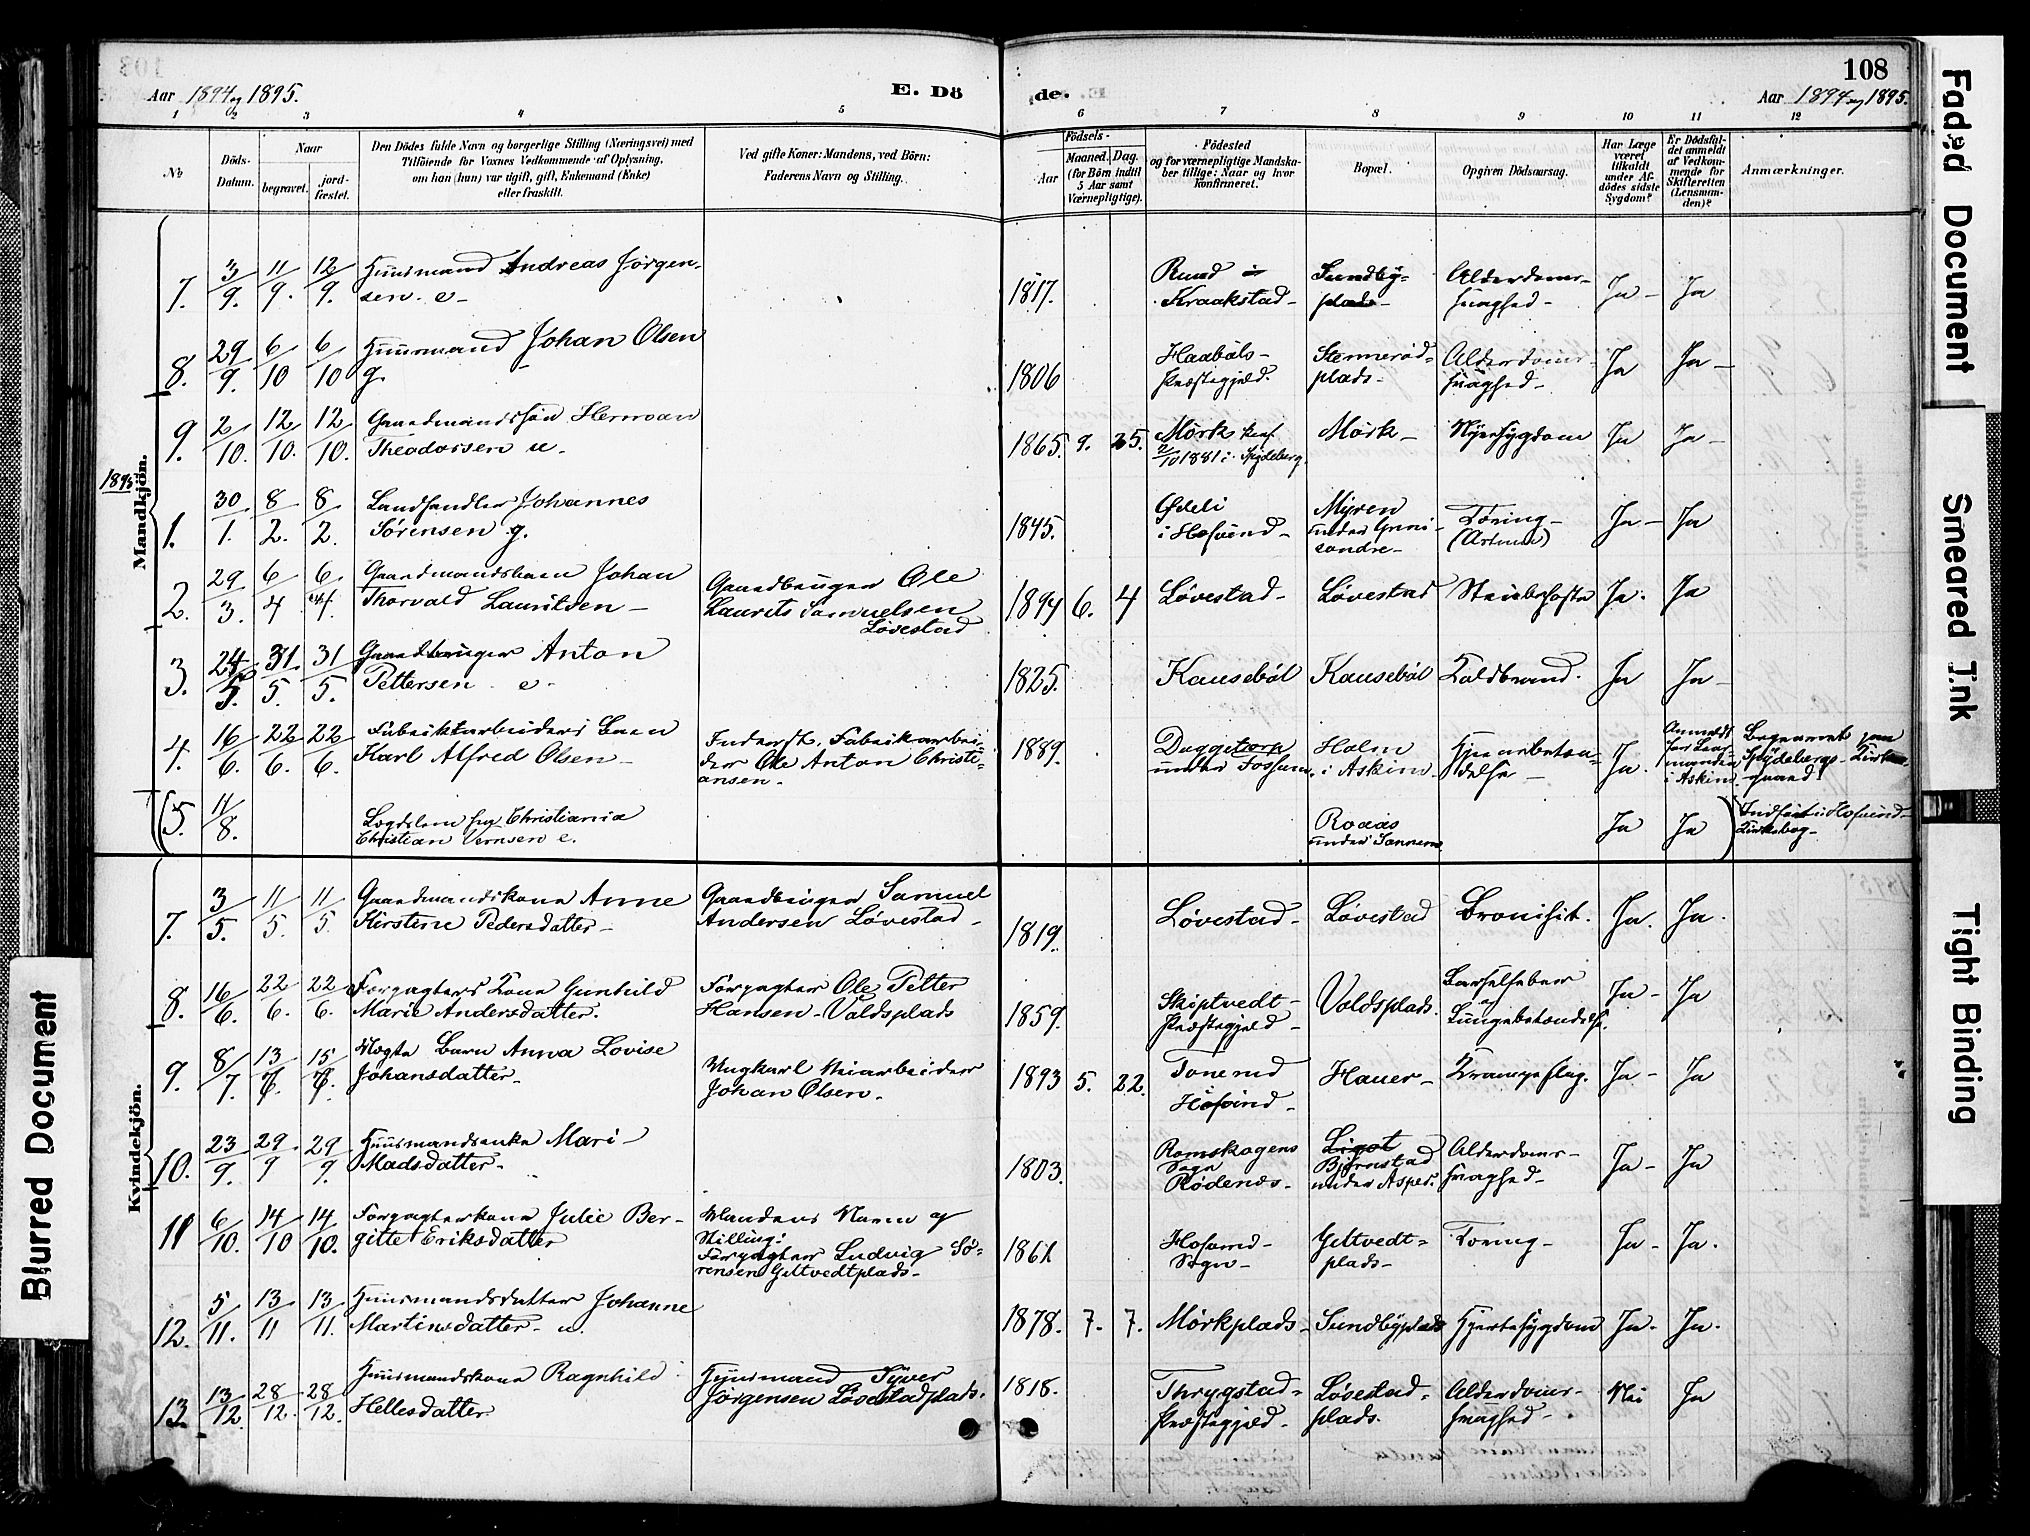 108
Aar 1894 og 1895.
E. Dö
de.
Aar 1894 og 1895.
1 2 3 4 5 6 7 8 9 10 11 12
No
Döds-
Datum.
Naar
begravet.
jord-
fæstet.
Den Dödes fulde Navn og borgerlige Stilling (Næringsvei) med
Tilföiende for Voxnes Vedkommende af Oplysning,
om han (hun) var ugift, gift, Enkemand (Enke)
eller fraskilt.
Ved gifte Koner: Mandens, ved Börn:
Faderens Navn og Stilling.
Födsels-
Aar
Maaned. Dag.
(for Börn indtil
5 Aar samt
Værnepligtige).
Födested
og for værnepligtige Mandska-
ber tillige: Naar og hvor
konfirmeret.
Bopæl.
Opgiven Dödsaarsag.
Har Læge
været
tilkaldt
under Af-
dödes sidste
Sygdom?
Er Dödsfal-
det anmeldt
af Vedkom-
mende for
Skifteretten
(Lensman-
den)?
Anmærkninger.
Mandkjön.
7. 3/9. 11/9. 12/9. Huusmand Andreas Jörgen-
sen. e- 1817. Ruud i
Kraakstad- Sundby-
plads- Alderdoms-
svaghed- Ja- Ja
8. 29/9. 6/10 6/10 Huusmand Johan Olsen
g. 1806 Haabøls-
Præstegjeld. Stenerød-
plads- Alderdoms-
svaghed- Ja Ja-
9. 2/10. 12/10. 12/10. Gaardmandssøn Herman
Theodorsen u. 1865. 9. 25. Mörk konf.
2/10 1881 i Spydeberg. Mörk- Nyresygdom Ja Ja-
1895
1. 30/1. 8/2. 8/2. Landhandler Johannes
Sörensen g. 1845. i Hofvind- Myren
under
søndre- Tæring-
Ja- Ja
2. 29/3. 6/4 6/4. Gaardmandsbarn Johan
Thorvald Lauritsen- Gaardbruger Ole
Laurits Samuelsen
Løvestad 1894 6. 4 Løvestad- Løvestad Ja. Ja
3. 24/5. 31/5. 31/5. Gaardbruger Anton
Pettersen e- 1825. Kausebøl Kausebøl Koldbrand. Ja Ja-
4. 16/6. 22/6. 22/6. Fabrikkarbeiders Barn
Karl Alfred Olsen- Inderst, Fabrikarbei-
der Ole Anton Christi-
ansen- 1889. Daggetorp
under Fossum. Holm
i Askim. Ja. Anmeldt
for Lens-
manden
i Askim Begravet paa
Spydebergs Kirke-
gaard
(5. 11/8. Logslem fra Christiania
Christian e. Roaas
under Ja Ja) Indført i Hofvind
Kirkebog-
Kvindekjön.
7. 3/5. 11/5. 11/5 Gaardmandskone Anne
Kirstine Pedersdatter- Gaardbruger Samuel
Andersen Løvestad- 1819. Løvestad- Løvestad Bronchit. Ja. Ja.
8. 16/6. 22/6. 22/6. Forpagters Kone Gunhild
Marie Andersdatter. Forpagter Ole Petter
Hansen-Valdsplads 1859. Skiptvedt-
Præstegjeld- Valdsplads. Barselfeber
og
Lungebetændelse. Ja- Ja
9. 8/7. 13/7. 15/7. Uægte Barn Anna Lovise
Johansdatter- Ungkarl Veiarbeider
Johan Olsen- 1893 5. 22. Tonerud
Hofvind- Haver- Krampeslag. Ja- Ja
10. 23/9. 29/9 29/9. Huusmandsenke Mari-
Madsdatter- 1803. Romskogens
Sogn
Rödenes- Ligot
Bjørnstad
under Aspes. Alderdoms-
svaghed- Ja- Ja
11 6/10. 14/10 14/10. Forpagterkone Julie Ber-
gitte Eriksdatter Mandens Navn og
Stilling:
Forpagter Ludvig Sö-
rensen Geltvedtplads- 1861 Hofvind-
Sogn- Geltvedt-
plads- Tæring- Ja- Ja.
12. 5/11. 13/11 13/11. Huusmandsdatter Johanne
Martinsdatter- u. 1878. 7. 7. Mörkplads- Sundbyplads Hjertesygdom Ja. Ja.
13. 13/12 28/12. 28/12. Huusmandskone Ragnhild
Hellesdatter Huusmand Syver
Jörgensen Løvestadplads. 1818. Thrygstad-
Præstegjeld. Løvestad-
plads. Alderdoms-
svaghed- Nei Ja
Faded Document
Smeared Ink
Tight Binding
Blurred Document